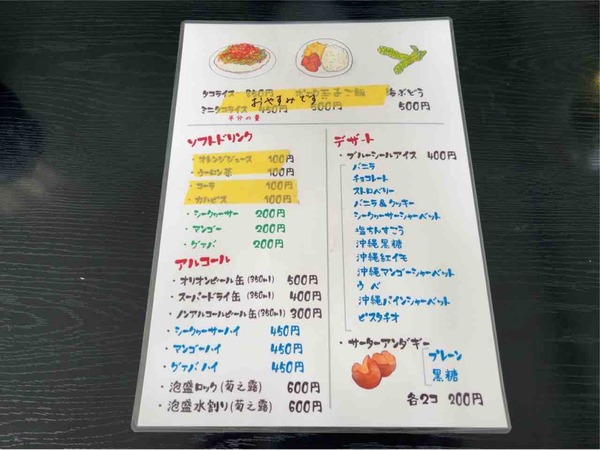 タコライス 850円 ポーク玉子ご飯 海ぶどう
おやすみです
ミニタコライス 450円 500円 500円
半分の量
ソフトドリンク
・オレンジジュース 100円
・ウーロン茶 100円
・コーラ 100円
・カルピス 100円
・シークヮーサー 200円
・マンゴー 200円
・グァバ 200円
アルコール
・オリオンビール缶(350ml) 500円
・スーパードライ缶(350ml) 400円
・ノンアルコールビール缶(350ml) 300円
・シークヮーサーハイ 450円
・マンゴーハイ 450円
・グァバハイ 450円
・泡盛ロック(菊之露) 600円
・泡盛水割り(菊之露) 600円
デザート
・ブルーシールアイス 400円
バニラ
チョコレート
ストロベリー
バニラ&クッキー
シークヮーサーシャーベット
塩ちんすこう
沖縄黒糖
沖縄紅イモ
沖縄マンゴーシャーベット
ウベ
沖縄パインシャーベット
ピスタチオ
・サーターアンダギー
プレーン
黒糖
各2コ 200円